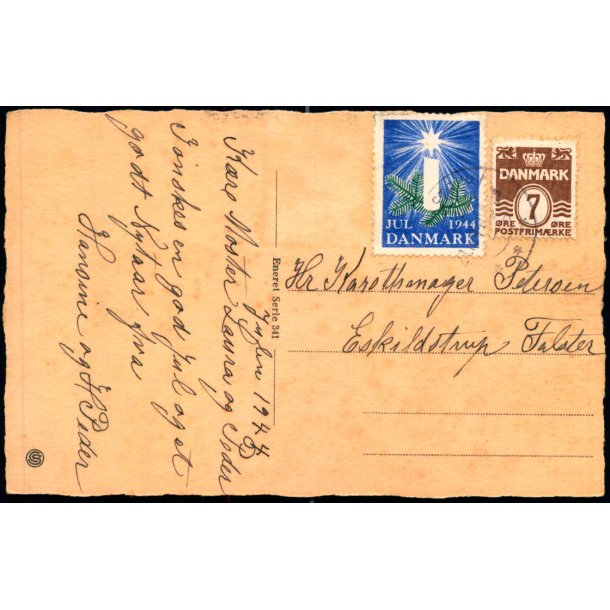 Julen 1944
Kære Moster Laura og Peder
I ønskes en god Jul og et
godt Nytaar fra
Hansine og H Peder
Eneret Serie 341
JUL 1944
DANMARK
DANMARK
7
ØRE ØRE
POSTFRIMÆRKE
Hr Karethmager Petersen
Eskildstrup Falster